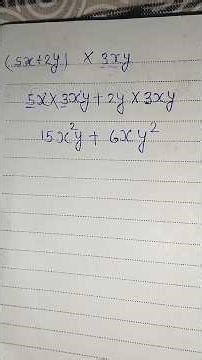 (5x+2y) × 3xy
5x×3xy+2y×3xy
15x²y + 6xy²